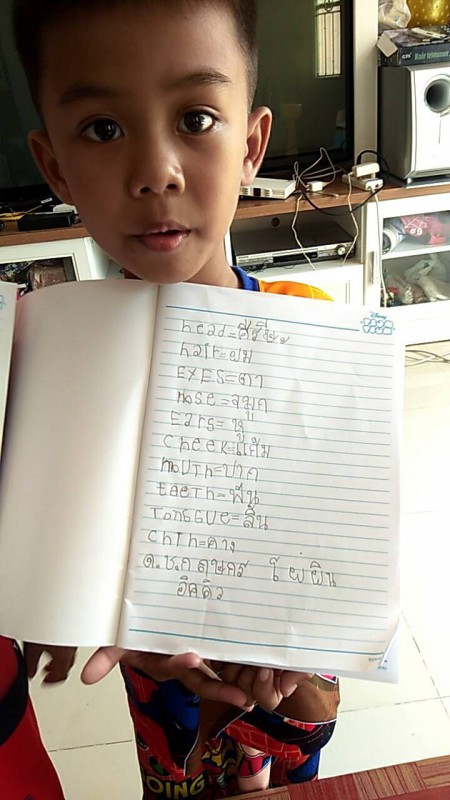 head=ศีรีษะ
hair=ผม
EYES=ตา
nose=จมูก
Ears=หู
Cheek=แก้ม
moUTh=ปาก
taeTh=ฟัน
TonGGUe=ลิ้น
ChIh=คาง
ด.ช.กฤษกร
Disney
DOING